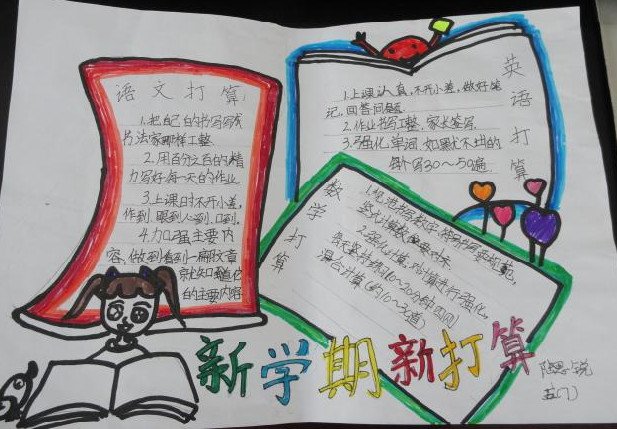 语文打算
1.把自己的书写写有
书法家那样工整.
2.用百分之百的精
力写好每一天的作业.
3.上课时不开小差,
作到眼到心到口到.
4.加强主要内
容,做到看到一篇文章
就知道它
的主要内容
英语打算
1.上课认真,不开小差,做好笔
记,回答问题
2.作业书写工整,家长签写
3.强化单词,如果默不出的
每个写30~50遍.
数学打算
2.强化计算,对计算进行强化,
每天坚持练10~20分钟四则
混合计算(约10~20道)
新学期新打算
五(7)